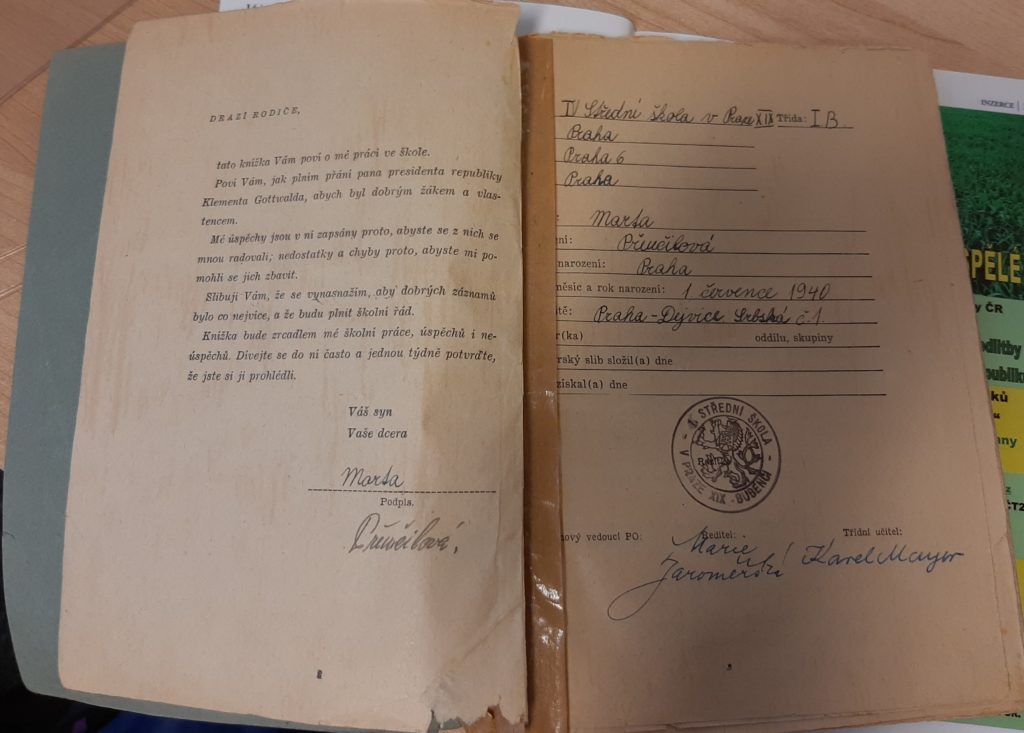 DRAZÍ RODIČE,
tato knížka Vám poví o mé práci ve škole.
Poví Vám, jak plním přání pana presidenta republiky
Klementa Gottwalda, abych byl dobrým žákem a vlas-
tencem.
Mé úspěchy jsou v ní zapsány proto, abyste se z nich se
mnou radovali; nedostatky a chyby proto, abyste mi po-
mohli se jich zbavit.
Slibuji Vám, že se vynasnažím, aby dobrých záznamů
bylo co nejvíce, a že budu plnit školní řád.
Knížka bude zrcadlem mé školní práce, úspěchů i ne-
úspěchů. Dívejte se do ní často a jednou týdně potvrďte,
že jste si ji prohlédli.
Váš syn
Vaše dcera
Marta
Podpis.
IV Střední škola v Praze XIX Třída: I B
Praha
Praha 6
Praha
Marta
ní:
narození: Praha
měsíc a rok narození: 1. července 1940
tě: Praha-Dyvice Srbská č.1
r(ka) oddílu, skupiny
rský slib složil(a) dne
získal(a) dne
STŘEDNÍ ŠKOLA
V PRAZE XIX - BUBENČI
nový vedoucí PO: Ředitel: Třídní učitel:
Marie Karel Mayer
INZERCE
SPĚLÉ
y ČR
ků
any
ČT2